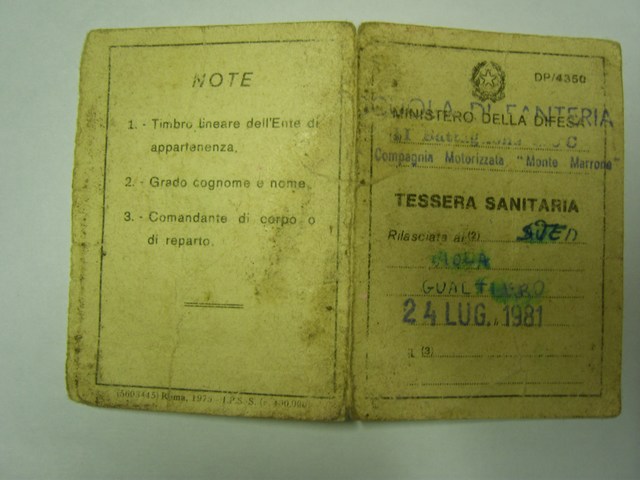 NOTE
1. - Timbro lineare dell'Ente di
appartenenza.
2. - Grado cognome e nome.
3. - Comandante di corpo o
di reparto.
Roma, 1973 - I.P.S.
DP/4350
SCUOLA DI FANTERIA
MINISTERO DELLA DIFESA
Compagnia Motorizzata "Monte Marrone"
TESSERA SANITARIA
Rilasciata al (2)
GUALTIERO
24 LUG. 1981
(3)